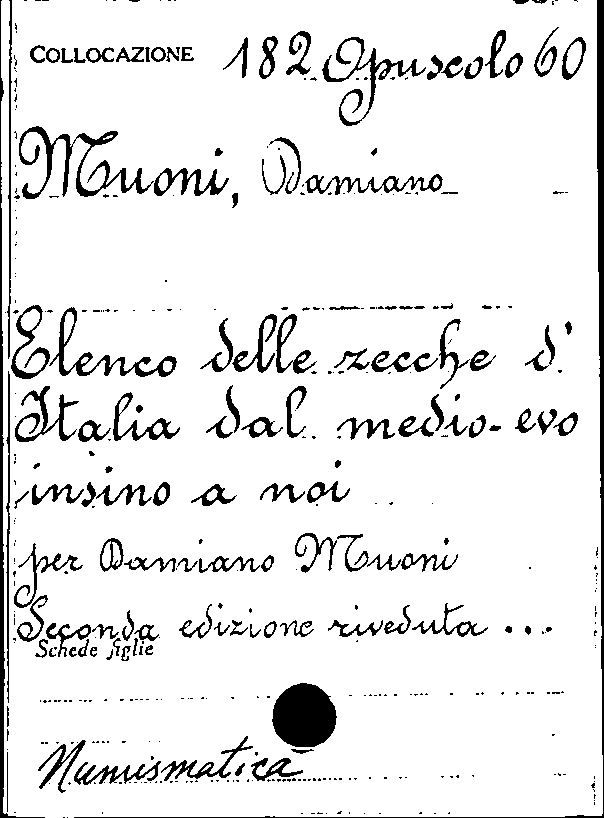 COLLOCAZIONE 182 Opuscolo 60
Muoni, Damiano
Elenco delle zecche d'
Italia dal medio-evo
insino a noi
per Damiano Muoni
Seconda edizione riveduta ...
Schede figlie
Numismatica